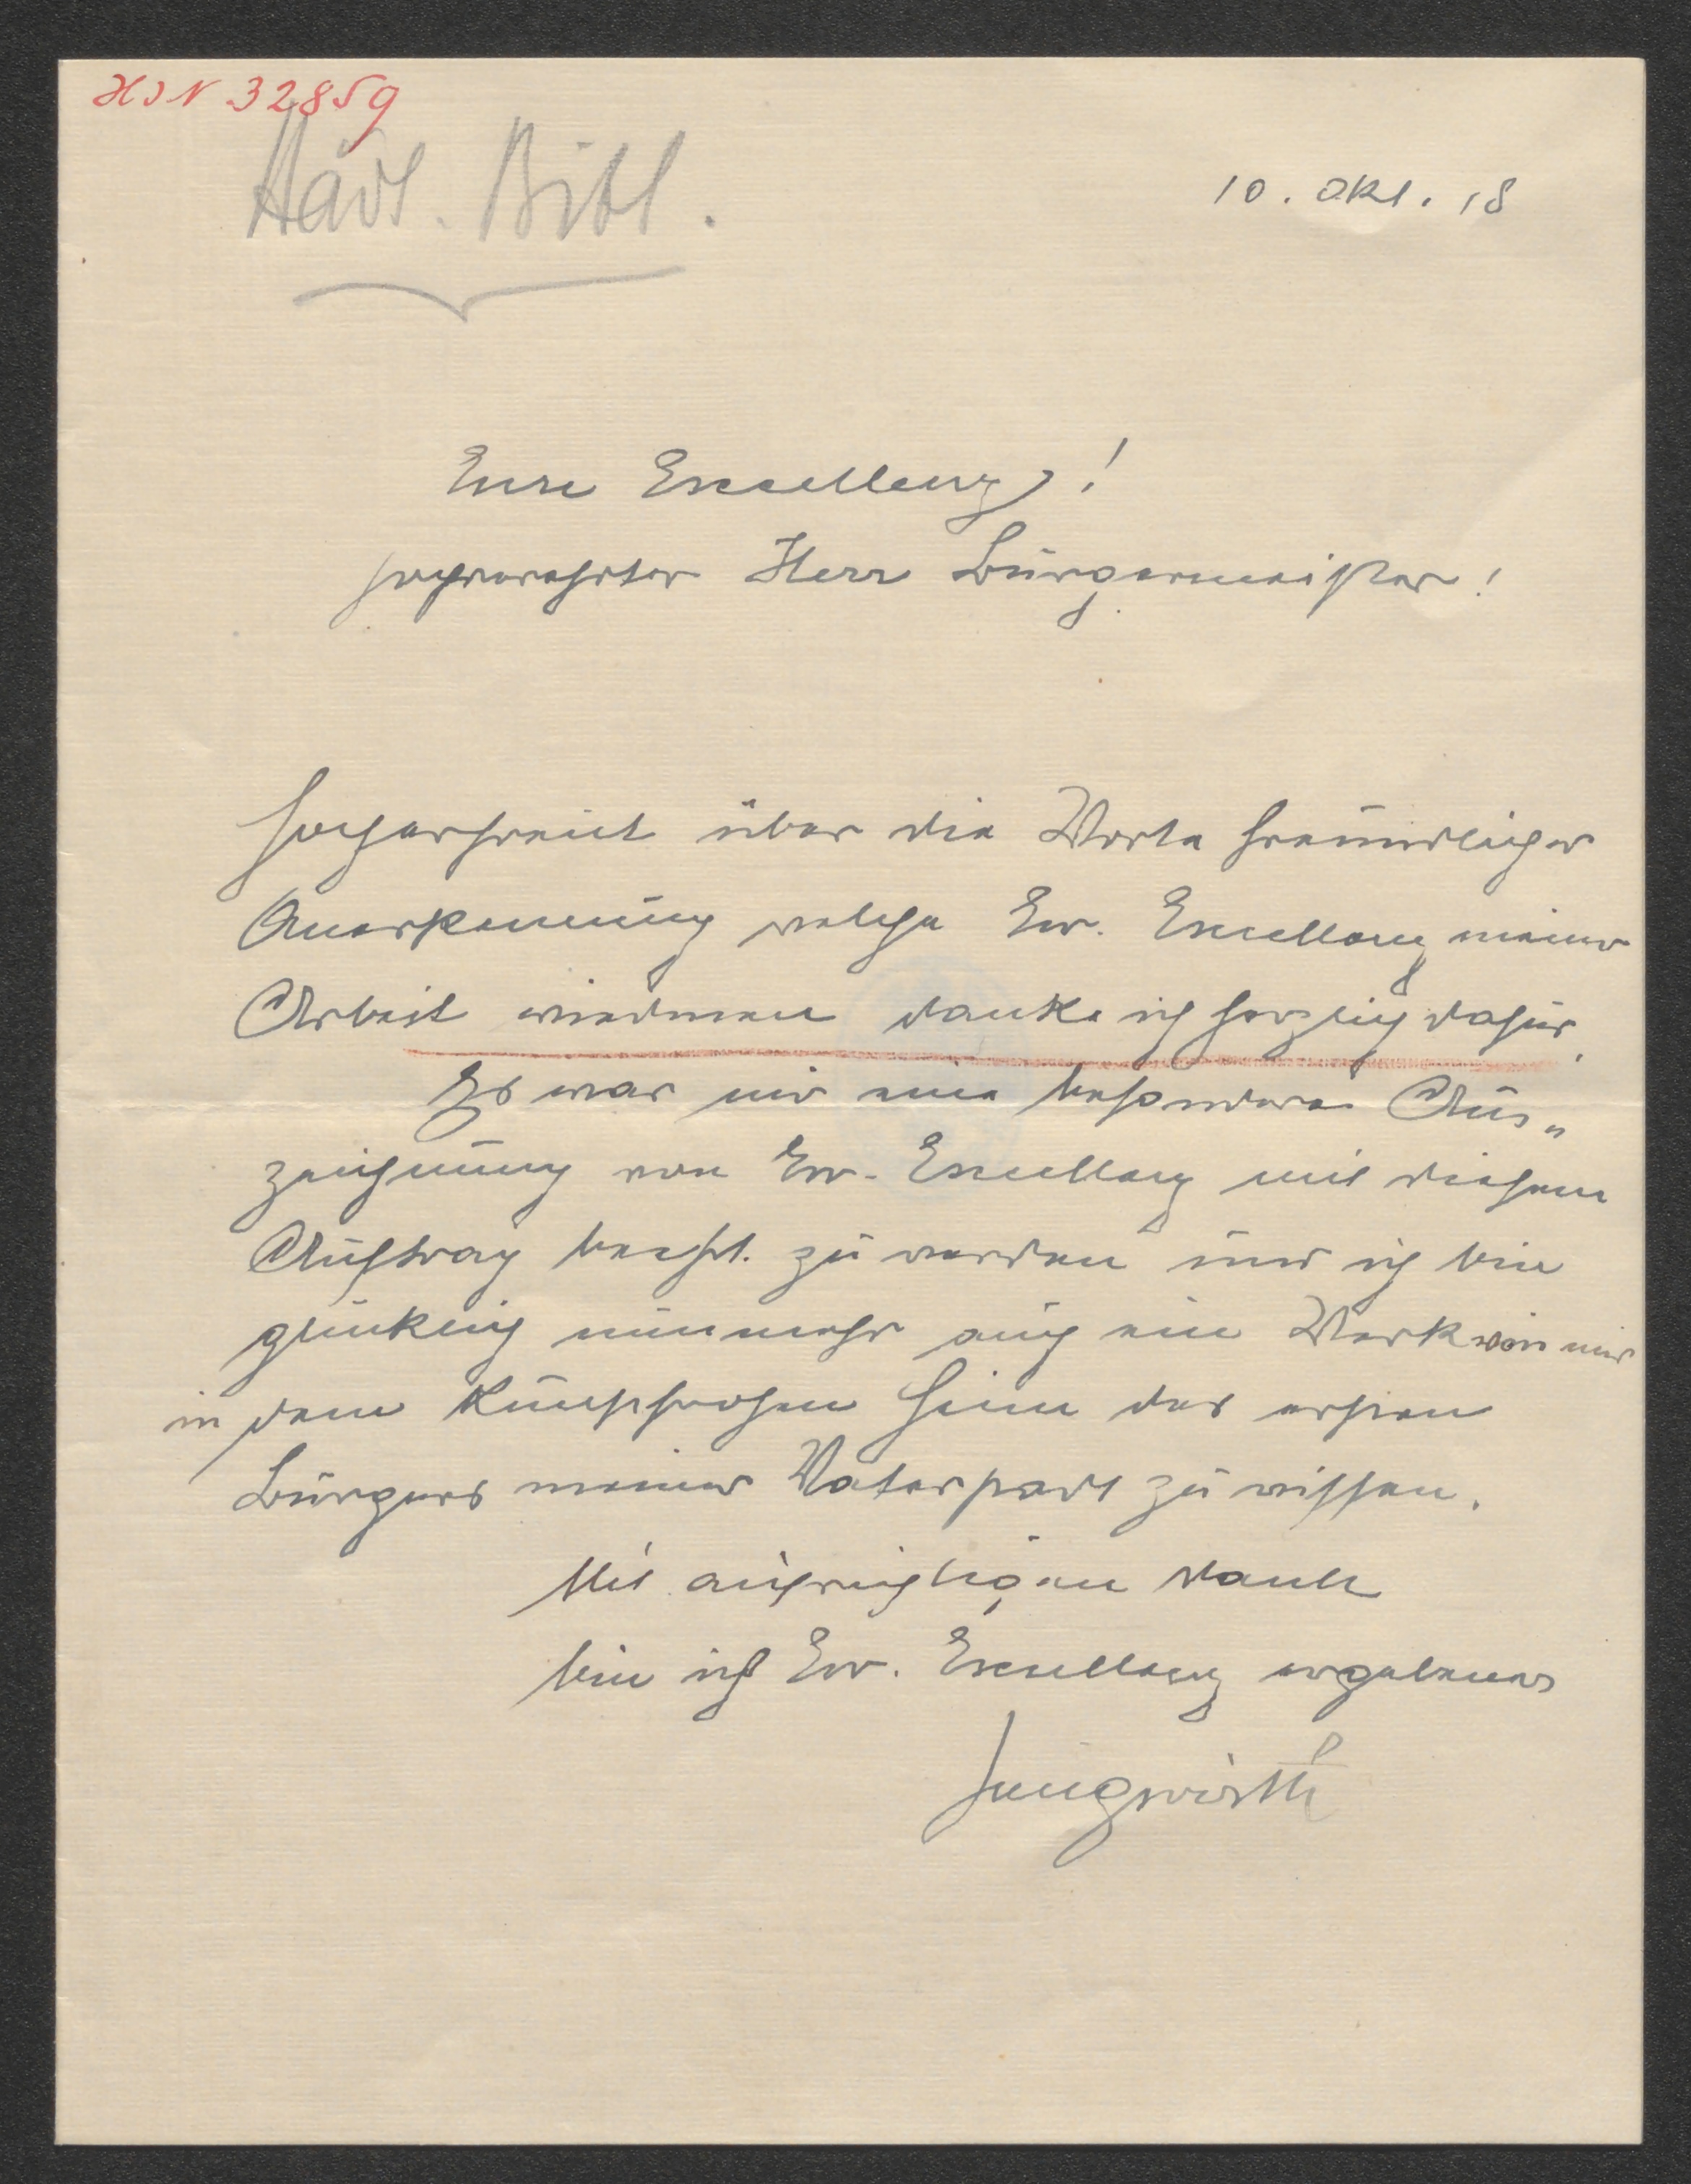 HIN 32859
Städt. Bibl.
10. Okt. 18
Eure Excellenz!
hochverehrter Herr Bürgermeister!
Hocherfreut über die Worte freundlicher
Anerkennung welche Ew. Excellenz meiner
Arbeit wiedmen danke ich herzlich dafür.
Es war mir eine besondere Aus„
zeichnung von Ew. Excellenz mit diesem
Auftrag beehrt zu werden und ich bin
glücklich nunmehr auch ein Werk von mir
in dem kunstfrohen Heim des ersten
Bürgers meiner Vaterstadt zu wissen.
Mit aufrichtigem Dank
bin ich Ew. Excellenz ergebener
Jungwirth